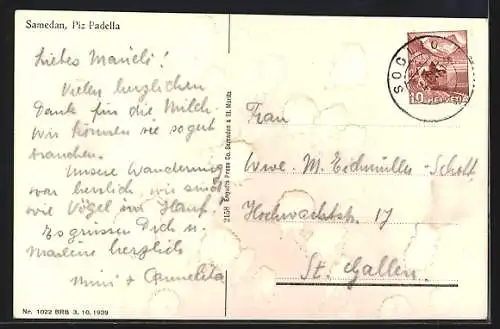 Samedan, Piz Padella
Liebes Marieli!
Vielen herzlichen
Dank für die Milch.
Wir können sie sogut
brauchen.
Unsere Wanderung
war herrlich, wir sind
wie Vögel im Hanf.
Es grüssen Dich u.
Marlene herzlich
Mimi + Carmelita
Nr. 1022 BRB 3. 10. 1939
2158 Engadin Press Co. Samaden & St. Moritz
SOG
10 HELVETIA
Frau
Wwe. M. Eichmüller-Schott
Hochwachtstr. 17
St. Gallen